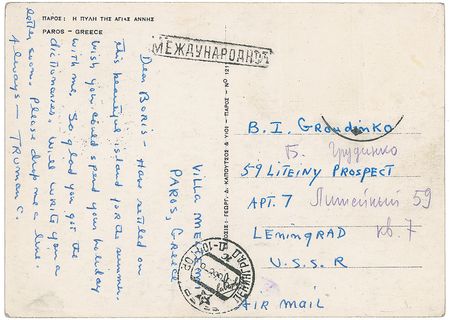 ΠΑΡΟΣ: Η ΠΥΛΗ ΤΗΣ ΑΓΙΑΣ ΑΝΝΗΣ
PAROS - GREECE
МЕЖДУНАРОДНОЕ
Villa
Paros, Greece
Dear Boris - Have settled on
this beautiful island for the summer.
Wish you could spend your holiday
with me. So glad you got the
dictionaries. Will write you a
letter soon. Please drop me a line.
Always - Truman C.
B. I. Groudinko
Б. Грудинко
59 Liteiny Prospect
Apt. 7 Литейный 59
Leningrad кв. 7
U.S.S.R
Air Mail